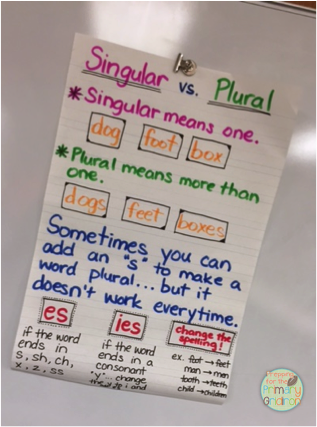 Singular vs. Plural
* Singular means one.
dog foot box
* Plural means more than
one.
dogs feet boxes
Sometimes you can
add an "s" to make a
word plural... but it
doesn't work everytime.
es
if the word
ends in
s, sh, ch,
x, z, ss
ies
if the word
ends in a
consonant
"y"... change
the y to i and
change the
spelling!
ex. foot → feet
man → men
tooth → teeth
child → children
Preparing
for the
Primary
Gridiron